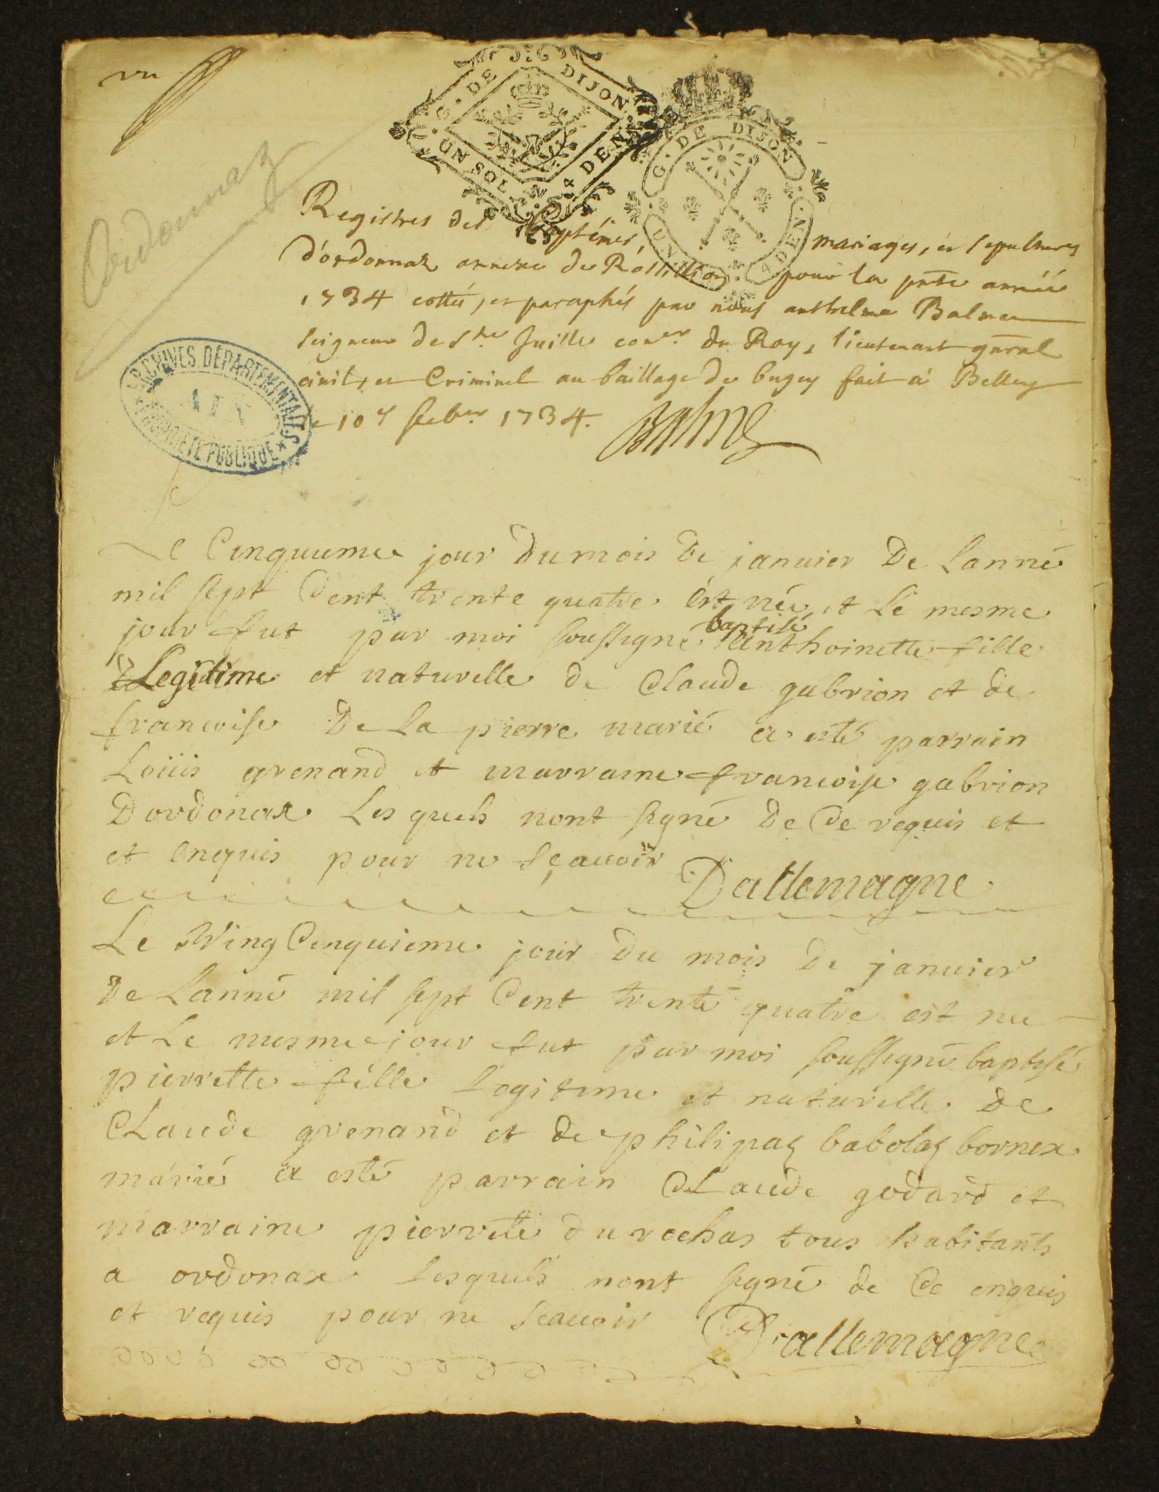 vu
G. DE DIJON
UN SOL 4 DEN
G. DE DIJON
UN 4 DEN
Ordonnaz
Registres des Baptêmes, mariages, et sepultures
d'ordonnaz annexe de Rossillion pour la pnte année
1734 cottés, et paraphés par nous anthelme Balme
seigneur de Ste Juille coner du Roy, lieutenant gnral
civil, et Criminel au bailliage de bugey fait à Belley
1734.
Balme
ARCHIVES DÉPARTEMENTALES
AIN
PROPRIÉTÉ PUBLIQUE
Le Cinquieme jour du mois de janvier De Lanné
mil sept Cent trente quatre est née et Le mesme
jour fut par moi soussigné baptisé Anthoinette fille
Legitime et naturelle de Claude gabrion et de
francoise De La pierre marié a esté parrain
Loüis grenand et marraine francoise gabrion
Dordonax Les quels nont signé De Ce requis et
et enquis pour ne sçauoir
Dallemagne
Le Vingt Cinquieme jour du mois De januier
De Lanné mil sept Cent trente quatre est née
et Le mesme jour fut par moi soussigné baptisé
pierrette fille Legitime et naturelle De
CLaude grenand et de philipaz babolaz bornex
marié a esté parrain CLaude godard et
marraine pierrette du rochas tous habitants
a ordonax Lesquels nont signé de Ce enquis
et requis pour ne sçauoir
Dallemagne